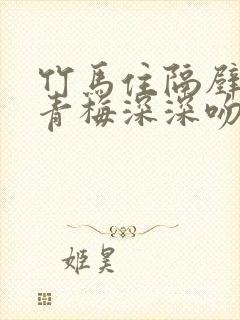 竹马住隔壁
青梅深深吻
姬昊